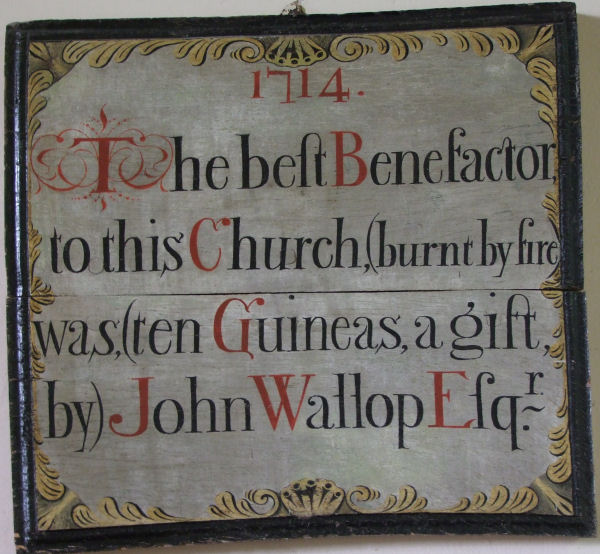 1714.
The beſt Benefactor,
to this Church,(burnt by fire
was,(ten Guineas, a gift,
by) John Wallop Eſqr.~